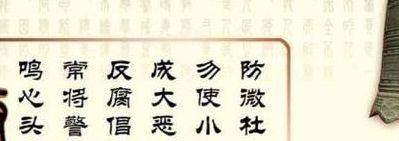 防微杜
勿使小
成大恶
反腐倡
常将警
鸣心头